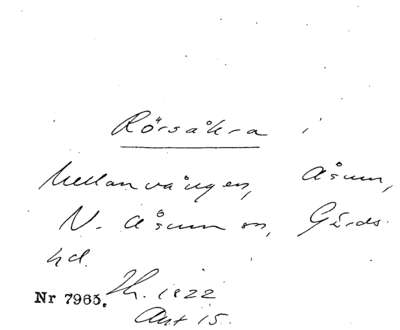 Rörsåkra i
Mellanvången, Åsum,
N. Åsum sn, Gärds
hd.
Nr 7965. Th. 1822
Akt 15.